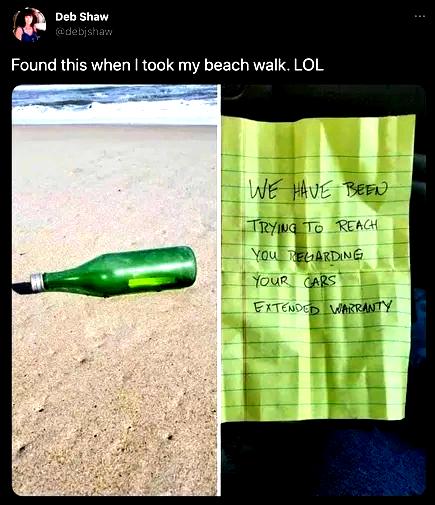 Deb Shaw
@debjshaw
Found this when I took my beach walk. LOL
WE HAVE BEEN
TRYING TO REACH
YOU REGARDING
YOUR CARS
EXTENDED WARRANTY